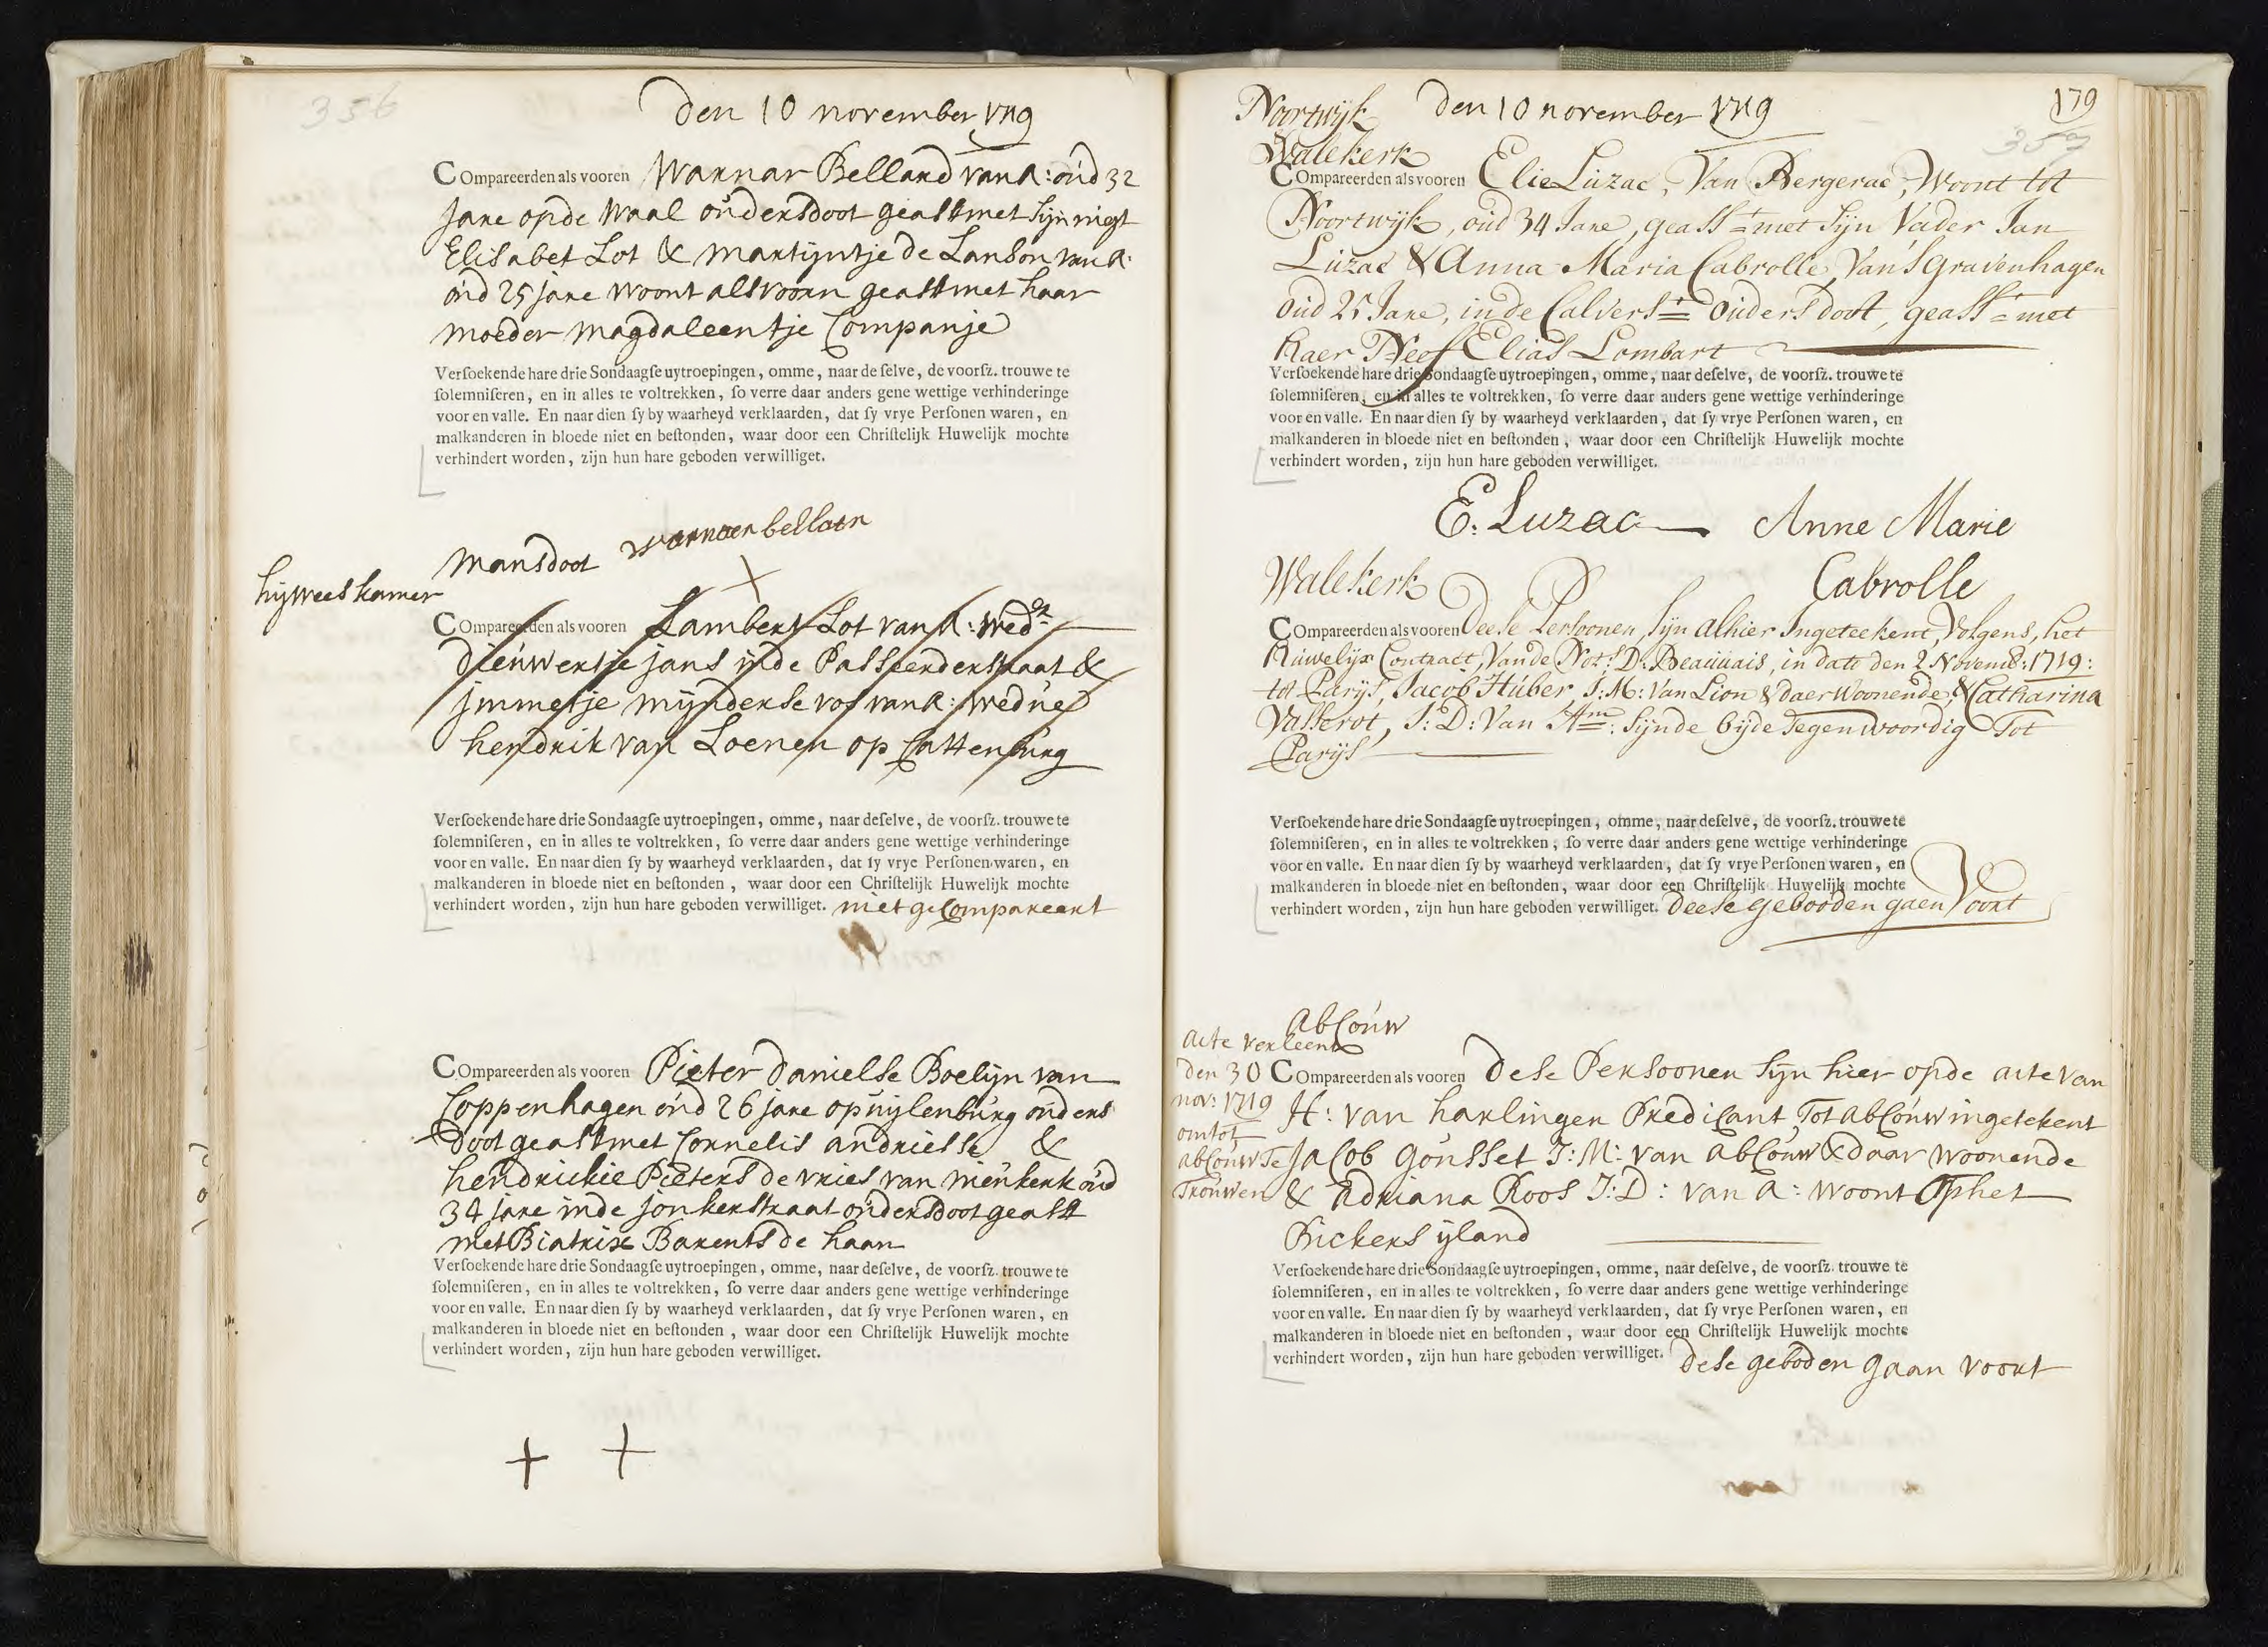 356
den 10 november 1719
Compareerden als vooren Warnar Bellard van A: oud 32
jare op de Waal ouders doot geasst met sijn nigt
Elisabet Lot & Martijntje de Lanson van A:
oud 25 jare woont als voorn geasst met haar
moeder Magdaleentje Companje
Verſoekende hare drie Sondaagſe uytroepingen, omme, naar de ſelve, de voorſz. trouwe te
ſolemniſeren, en in alles te voltrekken, ſo verre daar anders gene wettige verhinderinge
voor en valle. En naar dien ſy by waarheyd verklaarden, dat ſy vrye Perſonen waren, en
malkanderen in bloede niet en beſtonden, waar door een Chriſtelijk Huwelijk mochte
verhindert worden, zijn hun hare geboden verwilliget.
mansdoot
hij weeskamer
Compareerden als vooren Lambert Lot van A: wedr
dieuwertje jans in de Passeerderstraat &
jmmetje mijnderse vos van A: wedue
hendrik van Loenen op Cattenburg
Verſoekende hare drie Sondaagſe uytroepingen, omme, naar deſelve, de voorſz. trouwe te
ſolemniſeren, en in alles te voltrekken, ſo verre daar anders gene wettige verhinderinge
voor en valle. En naar dien ſy by waarheyd verklaarden, dat ſy vrye Perſonen waren, en
malkanderen in bloede niet en beſtonden, waar door een Chriſtelijk Huwelijk mochte
verhindert worden, zijn hun hare geboden verwilliget. niet gecompareert
Compareerden als vooren Pieter Danielse Boelijn van
Coppenhagen oud 26 jare op uijlenburg ouders
doot geasst met Cornelis andriesse &
hendrickie Pieters de vries van nieukerk oud
34 jare in de jonkerstraat ouders doot geasst
met Biatrix Barents de haan
Verſoekende hare drie Sondaagſe uytroepingen, omme, naar deſelve, de voorſz. trouwe te
ſolemniſeren, en in alles te voltrekken, ſo verre daar anders gene wettige verhinderinge
voor en valle. En naar dien ſy by waarheyd verklaarden, dat ſy vrye Perſonen waren, en
malkanderen in bloede niet en beſtonden, waar door een Chriſtelijk Huwelijk mochte
verhindert worden, zijn hun hare geboden verwilliget.
179
357
Noortwijk den 10 november 1719
Walekerk
Compareerden als vooren Elie Luzac, Van Bergerac, Woont tot
Noortwijk, oud 34 Jare, geasst met Sijn Vader Jan
Luzac & Anna Maria Cabrolle, Van 's Gravenhagen
oud 25 Jare, in de Calverst ouders doot, geasst met
haer Neef Elias Lombart
Verſoekende hare drie Sondaagſe uytroepingen, omme, naar deſelve, de voorſz. trouwe te
ſolemniſeren, en in alles te voltrekken, ſo verre daar anders gene wettige verhinderinge
voor en valle. En naar dien ſy by waarheyd verklaarden, dat ſy vrye Perſonen waren, en
malkanderen in bloede niet en beſtonden, waar door een Chriſtelijk Huwelijk mochte
verhindert worden, zijn hun hare geboden verwilliget.
E. Luzac Anne Marie
Cabrolle
Walekerk
Compareerden als vooren Deese Persoonen, sijn alhier Ingeteekent, Volgens, het
Huwelijx Contract, Van de Nots: D: Beauvais, in dato den 2 Novemb: 1719:
tot Parijs, Jacob Huber, J: M: Van Lion & daer Woonende, & Catharina
Vasserot, J: D: Van Am: Sijnde bijde Tegenwoordig Tot
Parijs
Verſoekende hare drie Sondaagſe uytroepingen, omme, naar deſelve, de voorſz. trouwe te
ſolemniſeren, en in alles te voltrekken, ſo verre daar anders gene wettige verhinderinge
voor en valle. En naar dien ſy by waarheyd verklaarden, dat ſy vrye Perſonen waren, en
malkanderen in bloede niet en beſtonden, waar door een Chriſtelijk Huwelijk mochte
verhindert worden, zijn hun hare geboden verwilliget. Deese gebooden gaen Voort
abCouw
acte verleent
den 30
nov: 1719
om tot
abCouw Te
Trouwen
Compareerden als vooren Dese Persoonen Sijn hier op de acte van
H: van harlingen Predicant Tot abCouw ingetekent
Jacob Gousset J: M: van abCouw & daar woonende
& Adriana Roos J: D: van A: woont Op het
Bickers ijland
Verſoekende hare drie Sondaagſe uytroepingen, omme, naar deſelve, de voorſz. trouwe te
ſolemniſeren, en in alles te voltrekken, ſo verre daar anders gene wettige verhinderinge
voor en valle. En naar dien ſy by waarheyd verklaarden, dat ſy vrye Perſonen waren, en
malkanderen in bloede niet en beſtonden, waar door een Chriſtelijk Huwelijk mochte
verhindert worden, zijn hun hare geboden verwilliget. Dese geboden gaan voort